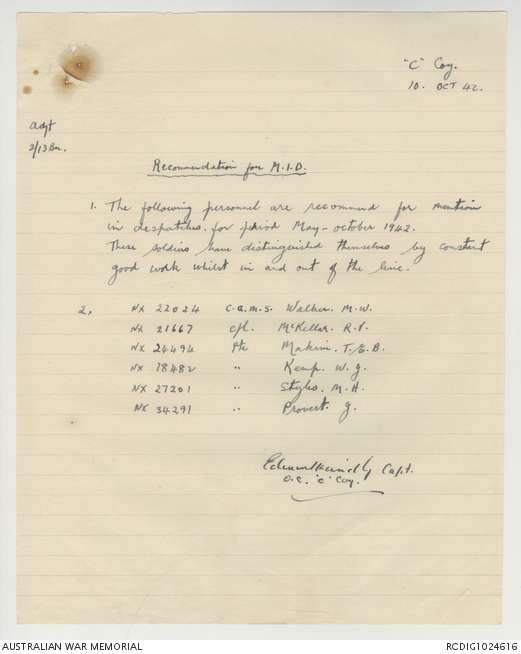 "C" Coy.
10. OCT 42.
Adjt
2/13 Bn.
Recommendation for M.I.D.
1. The following personnel are recommend for mention
in despatches. for period May - October 1942.
These soldiers have distinguished themselves by constant
good work whilst in and out of the line.
2. NX 22024 C.Q.M.S. Walker. M.W.
NX 21667 Cpl. McKellar. R.V.
NX 24494 Pte Makim. T.E.B.
NX 18482 " Kemp. W.J.
NX 27201 " Styles. M.H.
NX 34291 " Provest. J.
Capt.
O.C. "C" Coy.
AUSTRALIAN WAR MEMORIAL
RCDIG1024616